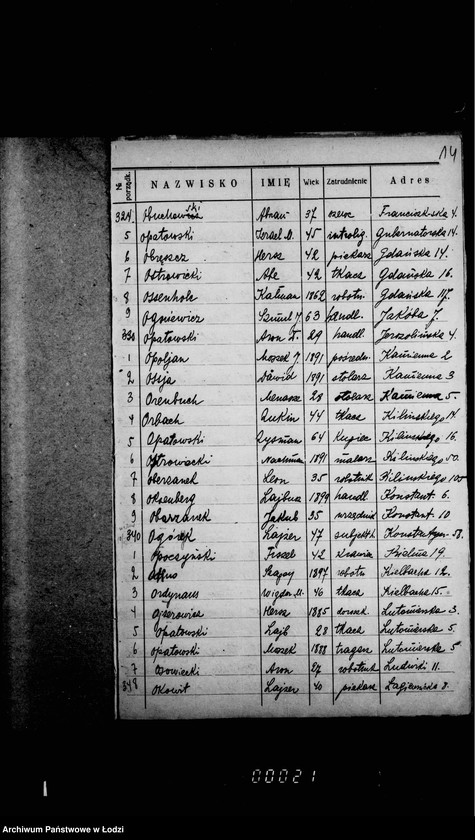 14
№ porządk. NAZWISKO IMIĘ Wiek Zatrudnienie Adres
324. Abram 37 szewc Franciszkańska 4.
5 Opatowski Izrael D. 45 introlig. Gubernatorska 14.
6 Obręszcz Hersz 42 piekarz Gdańska 14.
7 Ostrowiecki Aba 42 tkacz Gdańska 16.
8 Ossenholc Kałman 1862 robotn. Gdańska 117.
9 Ogniewicz Szmul J. 63 handl. Jakóba 7.
330 Opatowski Aron 29 handl. Jerozolimska 4.
1 Opoljan Moszek J. 1891 pośredn. Kamienna 2
2 Osija Dawid 1891 stolarz Kamienna 3
3 Orenbuch Menasze 28 stolarz Kamienna 5.
4 Orbach 44 tkacz Kilińskiego 14
5 Opatowski Zysman 64 kupiec Kilińskiego 16.
6 Ostrowiecki Nachman 1891 malarz Kilińskiego 50.
7 Oberżanek Leon 35 robotnik Kilińskiego 105
8 Oksenberg Lajbuś 1899 handl. Konstant. 6.
9 Obarzanek Jakub 35 urzędnik Konstant. 10
340 Ogórek Lajzer 47 subjekt h. Konstantyn. 58.
1 Opoczyński Fiszel 42 Kielma 19.
2 1897 robotn. Kielbacha 12.
3 Ordynans Wigdor M. 46 tkacz Kielbacha 15.
4 Ojzerowicz Hersz 1885 dorożk. Lutomierska 3.
5 Opatowski Lajb 28 tkacz Lutomierska 5.
6 Opatowski Moszek 1888 tragarz Lutomierska 5
7 Osowiecki Aron 27 robotnik Ludwiki 11.
348 Okowit Lajzer 40 piekarz Łagiewnicka 8.
00021
Archiwum Państwowe w Łodzi